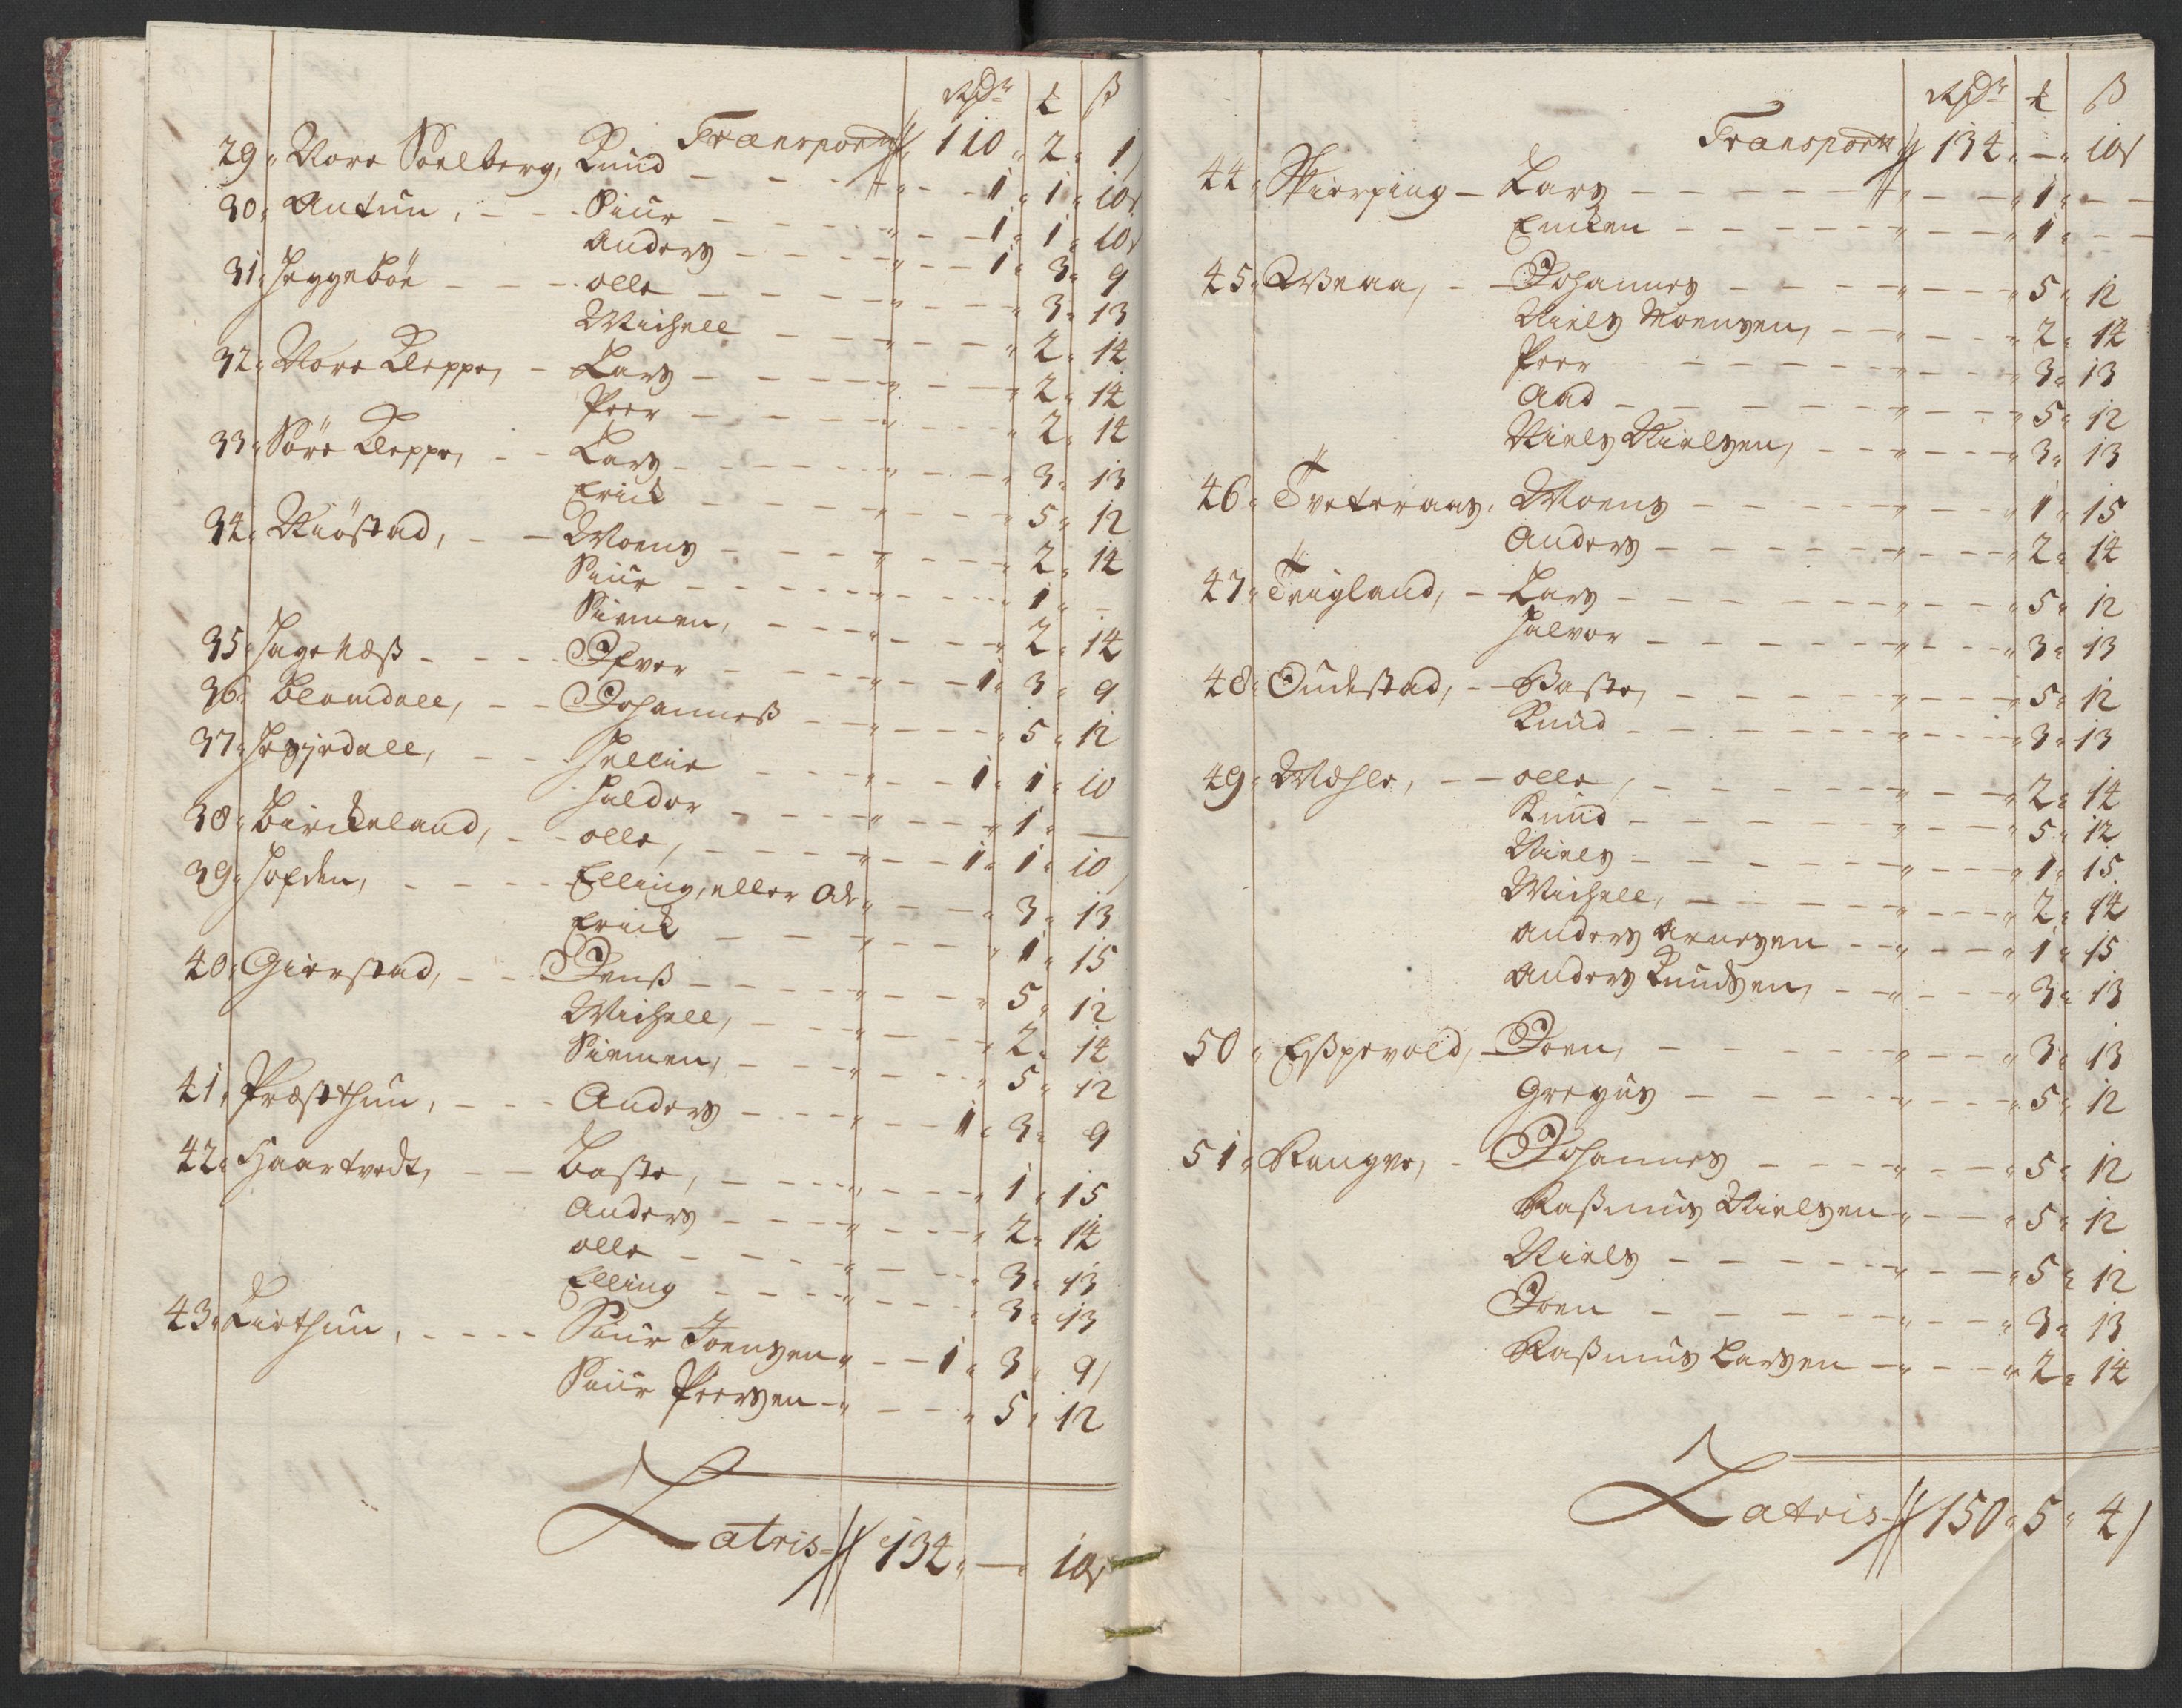 Rdr ₤ ß
Transport 110 " 2 " 1
29 " Nore Soelberg, Knud - - - 1 " 1 " 10
30 " Austun, - - Siur - - - 1 " 1 " 10
Anders - - - 1 " 3 " 9
31 " Heggebøe - - - olle - - - " 3 " 13
Michell - - - " 2 " 14
32 " Nore Kleppe, - Lars - - - " 2 " 14
Peer - - - " 2 " 14
33 " Søre Kleppe, - - Lars - - - " 3 " 13
Erick - - - " 5 " 12
34 " Niøstad, - - Moens - - - " 2 " 14
Siur - - - " 1 " -
Siemen, - - - " 2 " 14
35 " Hagenæß - - - Ifver - - - 1 " 3 " 9
36 " Blomdall, - - Johanneß - - - " 5 " 12
37 " Hesjedall, - - Hellie - - - 1 " 1 " 10
Haldor - - - " 1 " —
38 " Birckeland, - - olle, - - - 1 " 1 " 10
39 " Hofden, - - - Elling, eller Od " - - - " 3 " 13
Erick - - - " 1 " 15
40 " Gierstad, - - Jenß - - - " 5 " 12
Michell, - - - " 2 " 14
Siemen, - - - " 5 " 12
41 " Præsthun, - - - Anders - - - 1 " 3 " 9
42 " Haartvedt, - - Baste, - - - " 1 " 15
Anders - - - " 2 " 14
olle - - - " 3 " 13
Elling - - - " 3 " 13
43 " Lirthun, - - - Siur Joensen " - - 1 " 3 " 9
Siur Peersen - " - - - " 5 " 12
Latris 134 " — " 10
Rdr ₤ ß
Transport 134 " — " 10
44 " Skierping - Lars - - - " 1 " - -
Encken - - - " 1 " - -
45 " Qveaa, - - Johannes - - - " 5 " 12
Niels Moensen, - - - " 2 " 14
Peer - - - " 3 " 13
Aad - - - " 5 " 12
Niels Nielsen, - - - " 3 " 13
46 " Tveteraas, Moens - - - " 1 " 15
Anders - - - " 2 " 14
47 " Teigland, - Lars - - - " 5 " 12
Halvor - - - " 3 " 13
48 " Oudestad, - - Baste, - - - " 5 " 12
Knud - - - " 3 " 13
49 " Mæhle, - - olle, - - - " 2 " 14
Knud - - - " 5 " 12
Niels - - - " 1 " 15
Michell, - - - " 2 " 14
Anders Arnesen - - - " 1 " 15
Anders Knudsen, - - - " 3 " 13
50 " Eßpevold, - Joen, - - - " 3 " 13
Gregus - - - " 5 " 12
51 " Rangve, - Johannes - - - " 5 " 12
Raßmus Nielsen " - - " 5 " 12
Niels - - - " 5 " 12
Joen - - - " 3 " 13
Raßmus Larsen - " - - " 2 " 14
Latris 150 " 5 " 4